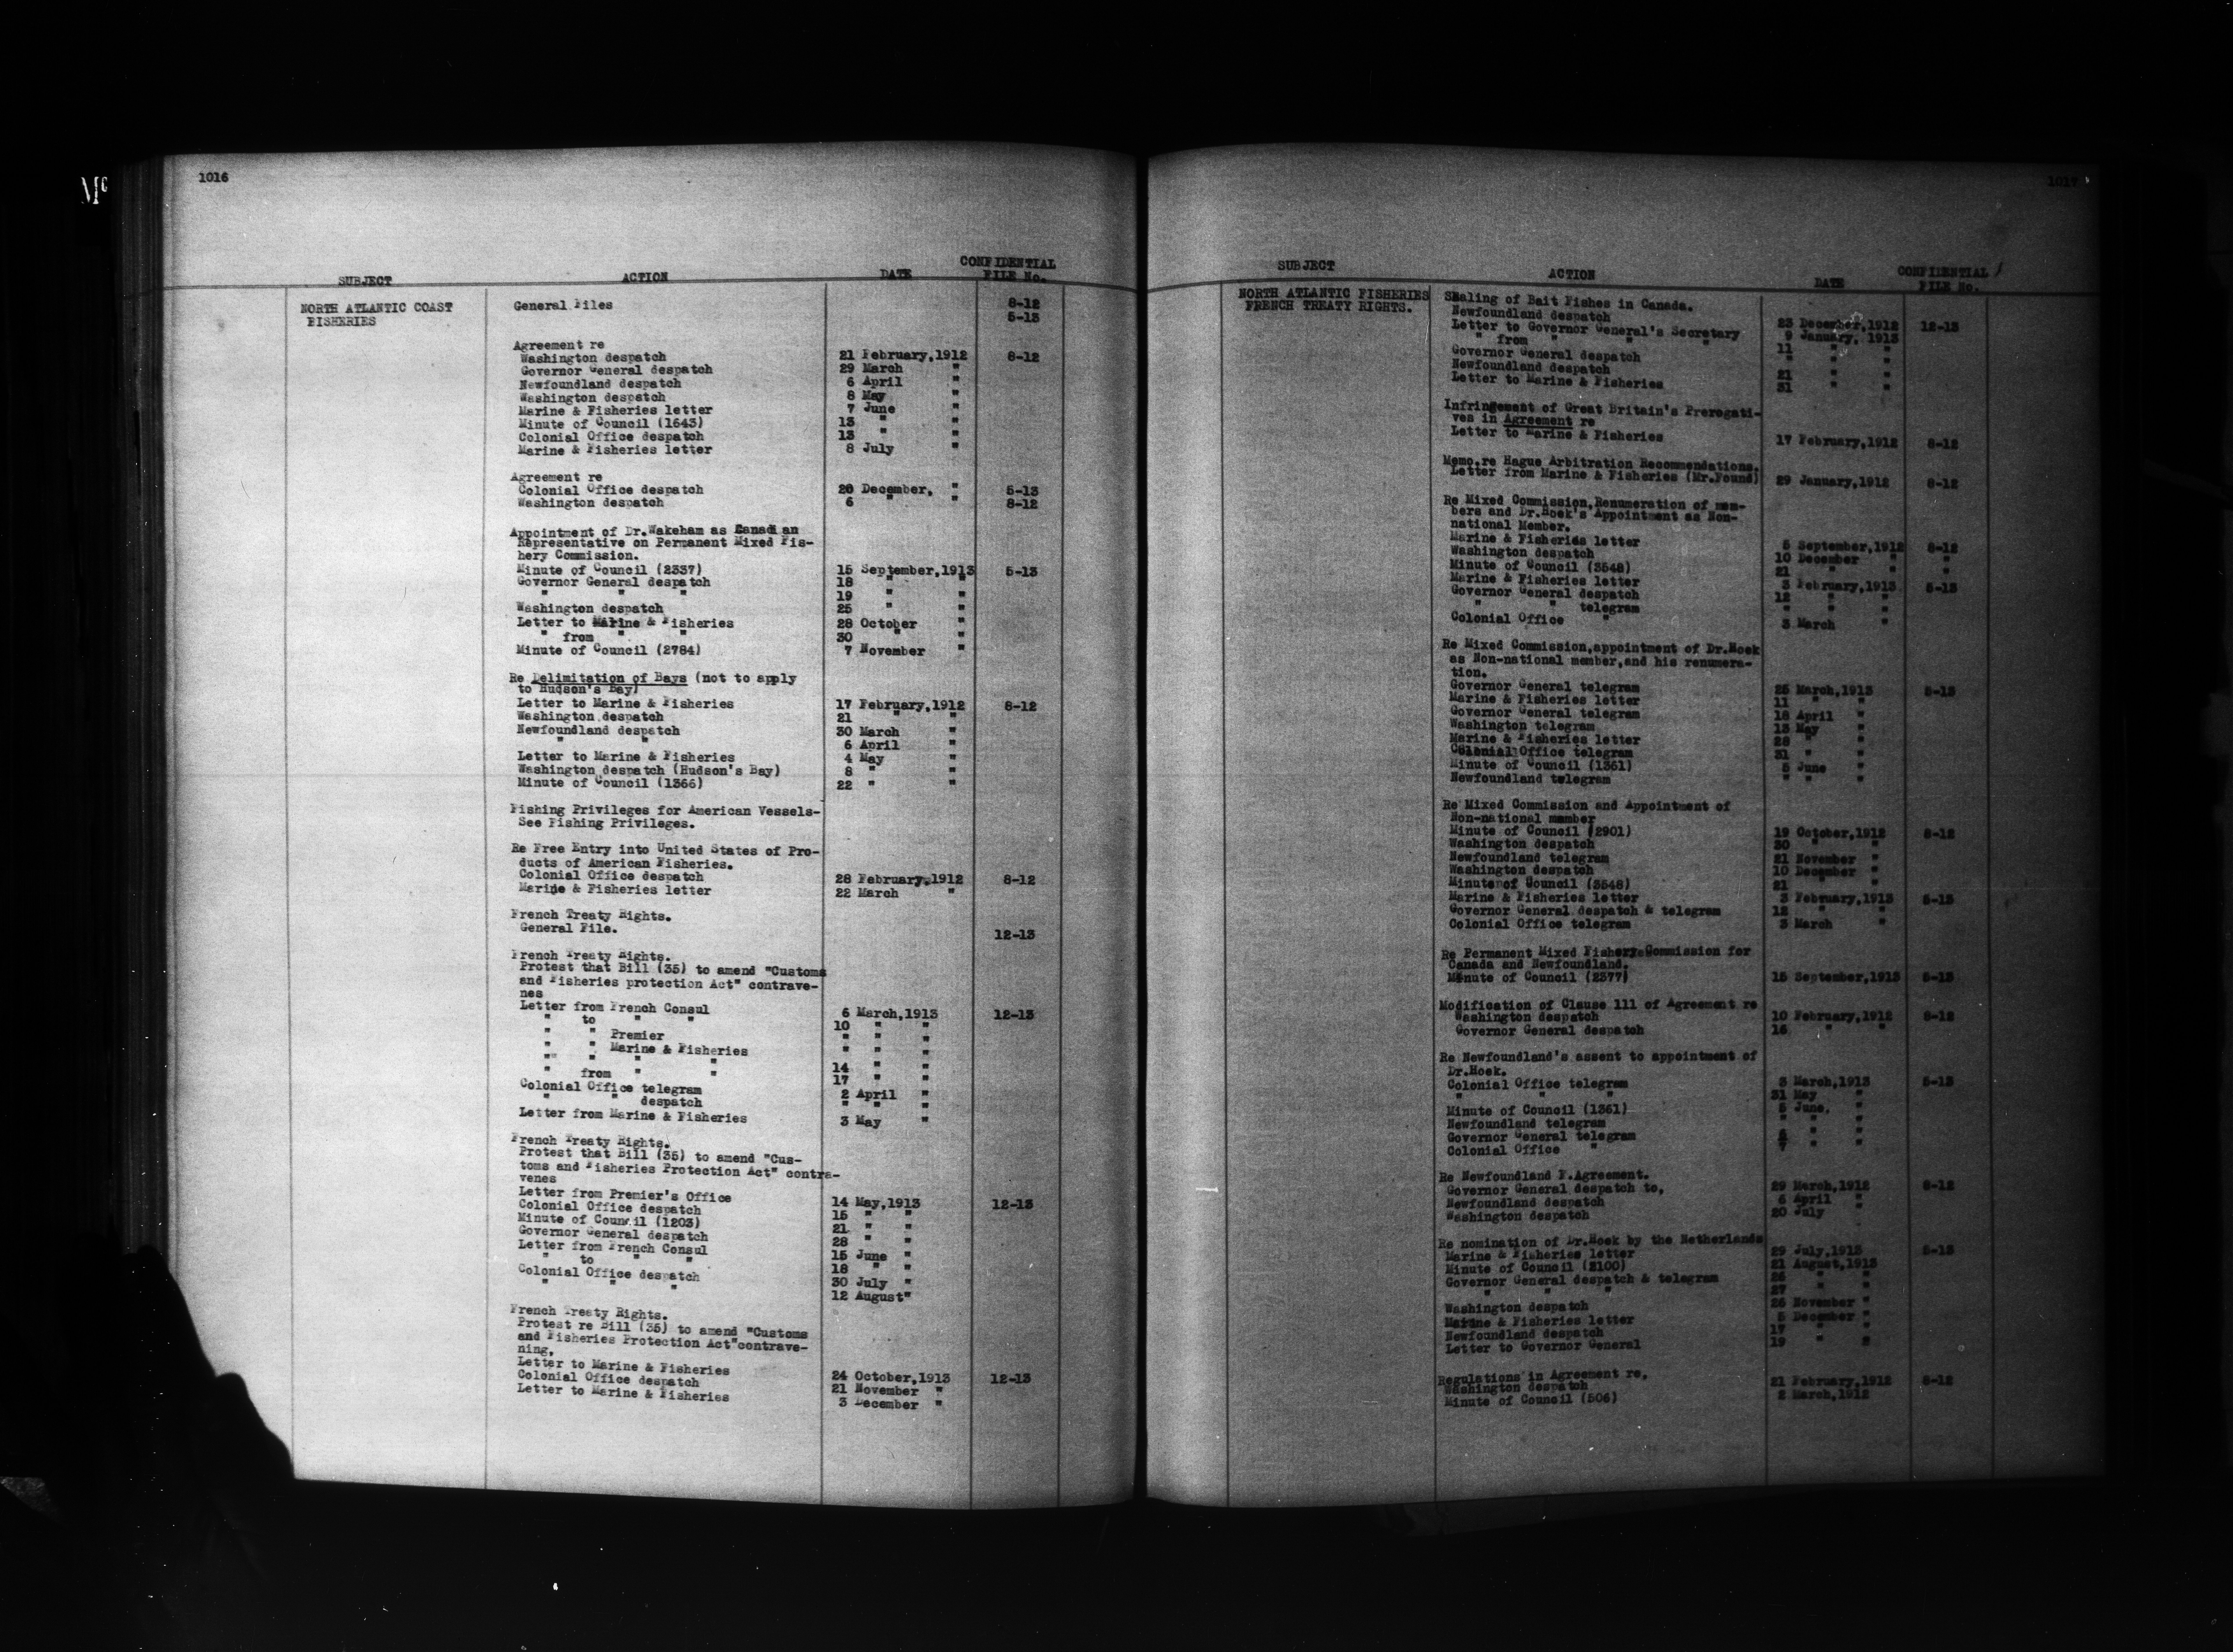 1016
SUBJECT ACTION DATE CONFIDENTIAL FILE No.
NORTH ATLANTIC COAST FISHERIES
General Files 8-12
5-13
Agreement re
Washington despatch 21 February,1912 8-12
Governor General despatch 29 March "
Newfoundland despatch 6 April "
Washington despatch 8 May "
Marine & Fisheries letter 7 June "
Minute of Council (1643) 13 " "
Colonial Office despatch 13 " "
Marine & Fisheries letter 8 July "
Agreement re
Colonial Office despatch 20 December, " 5-13
Washington despatch 6 " " 8-12
Appointment of Dr.Wakeham as Canadian
Representative on Permanent Mixed Fis-
hery Commission.
Minute of Council (2337) 15 September,1913 5-13
Governor General despatch 18 " "
" " " 19 " "
Washington despatch 25 " "
Letter to Marine & Fisheries 28 October "
" from " " 30 " "
Minute of Council (2784) 7 November "
Re Delimitation of Bays (not to apply
to Hudson's Bay)
Letter to Marine & Fisheries 17 February,1912 8-12
Washington despatch 21 " "
Newfoundland despatch 30 March "
" " 6 April "
Letter to Marine & Fisheries 4 May "
Washington despatch (Hudson's Bay) 8 " "
Minute of Council (1366) 22 " "
Fishing Privileges for American Vessels-
See Fishing Privileges.
Re Free Entry into United States of Pro-
ducts of American Fisheries.
Colonial Office despatch 28 February,1912 8-12
Marine & Fisheries letter 22 March "
French Treaty Rights.
General File. 12-13
French Treaty Rights.
Protest that Bill (35) to amend "Customs
and Fisheries protection Act" contrave-
nes
Letter from French Consul 6 March,1913 12-13
" to " " 10 " "
" " Premier " " "
" " Marine & Fisheries " " "
" " " " 14 " "
" from " " 17 " "
Colonial Office telegram 2 April "
" " despatch " " "
Letter from Marine & Fisheries 3 May "
French Treaty Rights.
Protest that Bill (35) to amend "Cus-
toms and Fisheries Protection Act" contra-
venes
Letter from Premier's Office 14 May,1913 12-13
Colonial Office despatch 15 " "
Minute of Council (1203) 21 " "
Governor General despatch 28 " "
Letter from French Consul 15 June "
" to " " 18 " "
Colonial Office despatch 30 July "
" " " 12 August"
French Treaty Rights.
Protest re Bill (35) to amend "Customs
and Fisheries Protection Act"contrave-
ning,
Letter to Marine & Fisheries 24 October,1913 12-13
Colonial Office despatch 21 November "
Letter to Marine & Fisheries 3 December "
1017
SUBJECT ACTION DATE CONFIDENTIAL FILE No.
NORTH ATLANTIC FISHERIES
FRENCH TREATY RIGHTS.
Sealing of Bait Fishes in Canada.
Newfoundland despatch 23 December,1912 12-13
Letter to Governor General's Secretary 9 January, 1913
" from " " " 11 " "
Governor General despatch " " "
Newfoundland despatch 21 " "
Letter to Marine & Fisheries 31 " "
Infringement of Great Britain's Prerogati-
ves in Agreement re
Letter to Marine & Fisheries 17 February,1912 8-12
Memo.re Hague Arbitration Recommendations.
Letter from Marine & Fisheries (Mr.Found) 29 January,1912 8-12
Re Mixed Commission,Renumeration of mem-
bers and Dr.Hoek's Appointment as Non-
national Member.
Marine & Fisheries letter 5 September,1912 8-12
Washington despatch 10 December " "
Minute of Council (3548) 21 " " "
Marine & Fisheries letter 3 February,1913 5-13
Governor General despatch 12 " "
" " telegram " " "
Colonial Office " 3 March "
Re Mixed Commission,appointment of Dr.Hoek
as Non-national member,and his renumera-
tion.
Governor General telegram 25 March,1913 5-13
Marine & Fisheries letter 11 " "
Governor General telegram 18 April "
Washington telegram 13 May "
Marine & Fisheries letter 28 " "
Colonial Office telegram 31 " "
Minute of Council (1361) 5 June "
Newfoundland telegram " " "
Re Mixed Commission and Appointment of
Non-national member
Minute of Council (2901) 19 October,1912 8-12
Washington despatch 30 " "
Newfoundland telegram 21 November "
Washington despatch 10 December "
Minute of Council (3548) 21 " "
Marine & Fisheries letter 3 February,1913 5-13
Governor General despatch & telegram 12 " "
Colonial Office telegram 3 March "
Re Permanent Mixed Fishery Commission for
Canada and Newfoundland.
Minute of Council (2377) 15 September,1913 5-13
Modification of Clause 111 of Agreement re
Washington despatch 10 February,1912 8-12
Governor General despatch 16 " "
Re Newfoundland's assent to appointment of
Dr.Hoek.
Colonial Office telegram 3 March,1913 5-13
" " " 31 May "
Minute of Council (1361) 5 June, "
Newfoundland telegram " " "
Governor General telegram " "
Colonial Office " 7 " "
Re Newfoundland F.Agreement.
Governor General despatch to, 29 March,1912 8-12
Newfoundland despatch 6 April "
Washington despatch 20 July
Re nomination of Dr.Hoek by the Netherlands
Marine & Fisheries letter 29 July,1913 5-13
Minute of Council (2100) 21 August,1913
Governor General despatch & telegram 25 " "
" " " 27 " "
Washington despatch 26 November "
Marine & Fisheries letter 5 December "
Newfoundland despatch 17 " "
Letter to Governor General 19 " "
Regulations in Agreement re,
Washington despatch 21 February,1912 8-12
Minute of Council (506) 2 March,1912